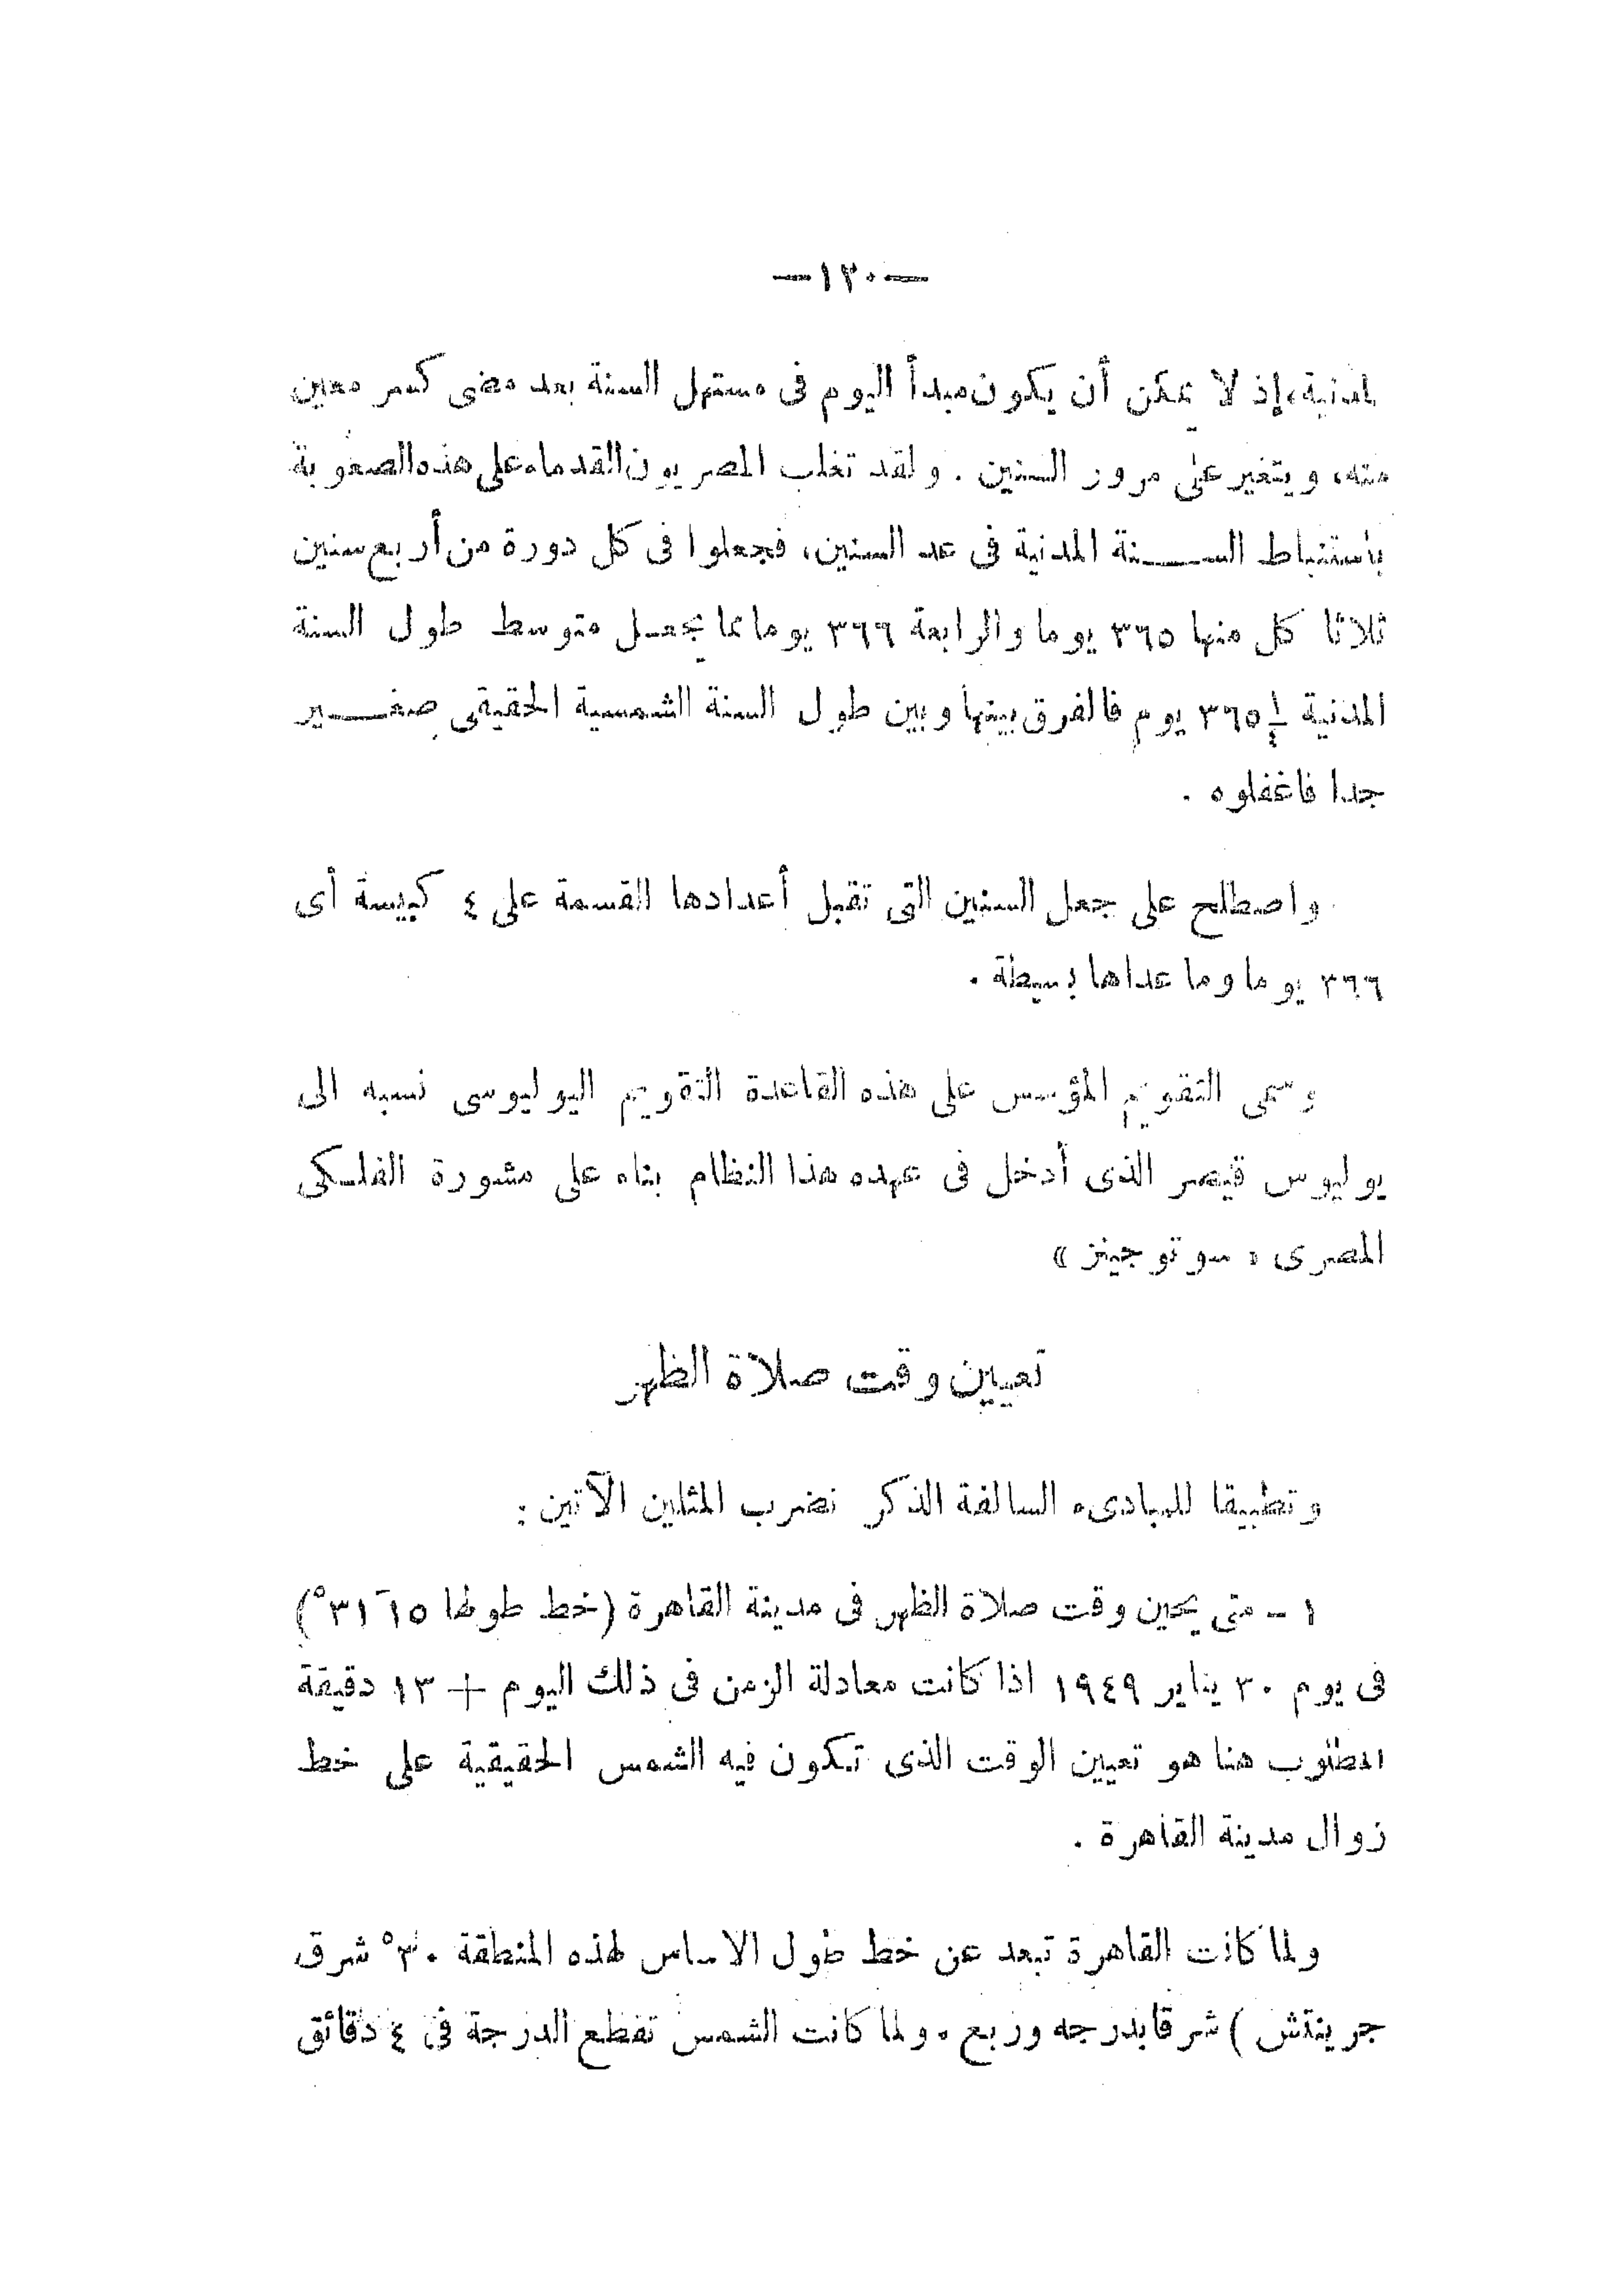 —١٢٠—
المدنية، إذ لا يمكن أن يكون مبدأ اليوم فى مستهل السنة بعد مضى كسر معين
منه، ويتغير على مرور السنين . ولقد تغلب المصريون القدماء على هذه الصعوبة
باستنباط الســـنة المدنية فى عد السنين، فجعلوا فى كل دورة من أربع سنين
ثلاثا كل منها ٣٦٥ يوما والرابعة ٣٦٦ يوما مما يجعل متوسط طول السنة
المدنية ٣٦٥¼ يوم فالفرق بينها وبين طول السنة الشمسية الحقيقى صغـــير
جدا فاغفلوه .
واصطلح على جعل السنين التى تقبل أعدادها القسمة على ٤ كبيسة أى
٣٦٦ يوما وما عداها بسيطة .
وسمى التقويم المؤسس على هذه القاعدة التقويم اليوليوسى نسبه الى
يوليوس قيصر الذى أدخل فى عهده هذا النظام بناء على مشورة الفلكى
المصرى « سوتوجينز »
تعيين وقت صلاة الظهر
وتطبيقا للمبادىء السالفة الذكر نضرب المثلين الآتين :
١ - متى يحين وقت صلاة الظهر فى مدينة القاهرة (خط طولها ١٥َ ٣١°)
فى يوم ٣٠ يناير ١٩٤٩ اذا كانت معادلة الزمن فى ذلك اليوم + ١٣ دقيقة
المطلوب هنا هو تعيين الوقت الذى تكون فيه الشمس الحقيقية على خط
زوال مدينة القاهرة .
ولما كانت القاهرة تبعد عن خط طول الاساس لهذه المنطقة ٣٠° شرق
جرينتش ) شرقا بدرجه وربع . ولما كانت الشمس تقطع الدرجة فى ٤ دقائق